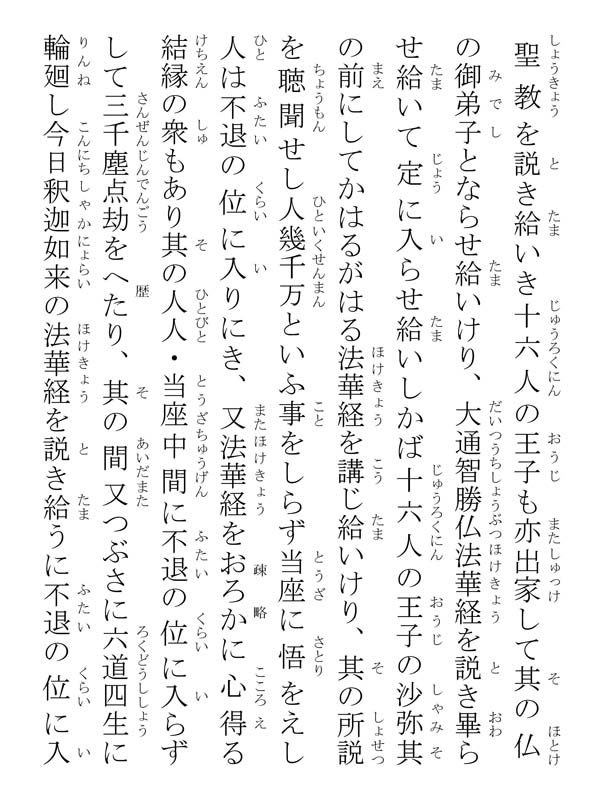 聖教を説き給いき十六人の王子も亦出家して其の仏
の御弟子とならせ給いけり、大通智勝仏法華経を説き畢ら
せ給いて定に入らせ給いしかば十六人の王子の沙弥其
の前にしてかはるがはる法華経を講じ給いけり、其の所説
を聴聞せし人幾千万といふ事をしらず当座に悟をえし
人は不退の位に入りにき、又法華経をおろかに心得る
結縁の衆もあり其の人人・当座中間に不退の位に入らず
して三千塵点劫をへたり、其の間又つぶさに六道四生に
輪廻し今日釈迦如来の法華経を説き給うに不退の位に入